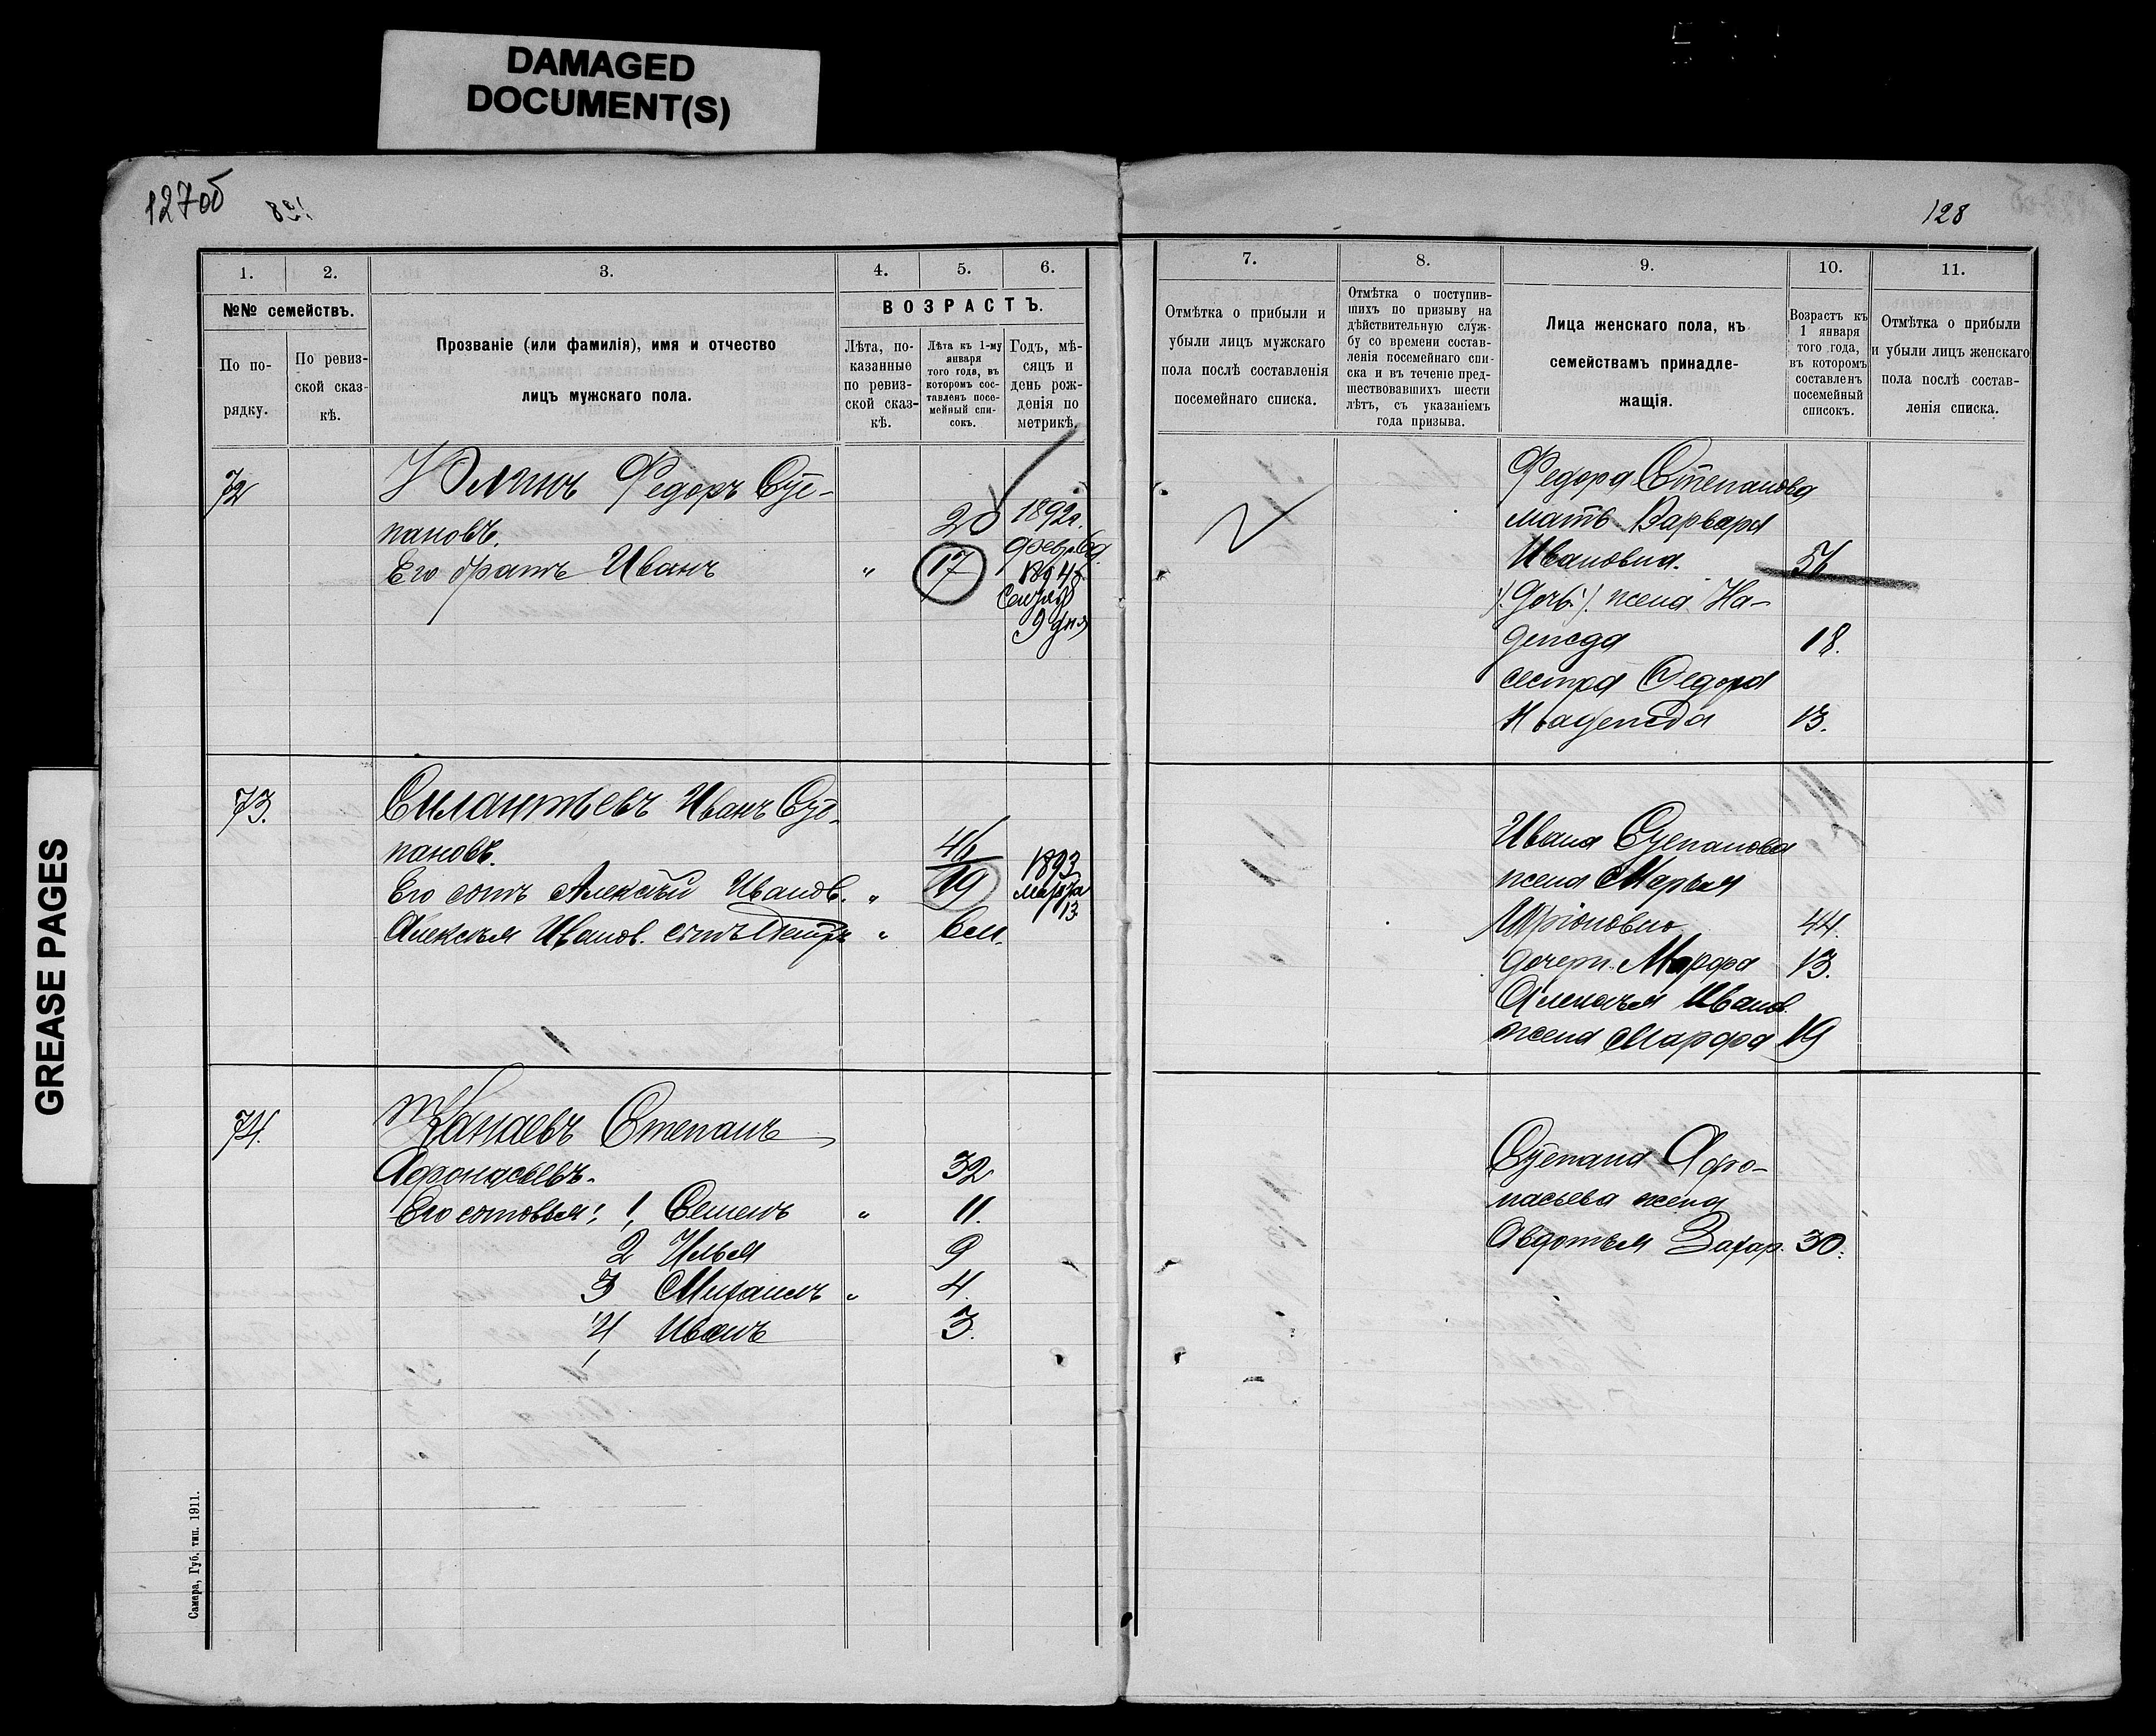 DAMAGED
DOCUMENT(S)
GREASE PAGES
127об
128
1.
2.
3.
4.
5.
6.
№№ семействъ.
ВОЗРАСТЪ.
По по-
рядку.
По ревиз-
ской сказ-
кѣ.
Прозваніе (или фамилія), имя и отчество
лицъ мужскаго пола.
Лѣта, по-
казанные
по ревиз-
ской сказ-
кѣ.
Лѣта къ 1-му
января
того года, въ
которомъ сос-
тавленъ посе-
мейный спи-
сокъ.
Годъ, мѣ-
сяцъ и
день рож-
денія по
метрикѣ.
72
Юлинъ Федоръ Сте-
пановъ.
20
1892г.
Его братъ Иванъ
"
17
9 дня
73.
Силантьевъ Иванъ Сте-
пановъ.
46
Его сынъ Алексѣй Иванов.
"
19
1893
марта
13
Алексѣя Иванов. сынъ Петръ
"
6 м.
74.
Канаевъ Степанъ
Афонасьевъ.
32
Его сыновья: 1, Семенъ
"
11.
2 Илья
9
3 Михаилъ
"
4.
4 Иванъ
3.
Самара, Губ. тип. 1911.
7.
8.
9.
10.
11.
Отмѣтка о прибыли и
убыли лицъ мужскаго
пола послѣ составленія
посемейнаго списка.
Отмѣтка о поступив-
шихъ по призыву на
дѣйствительную служ-
бу со времени состав-
ленія посемейнаго спи-
ска и въ теченіе пред-
шествовавшихъ шести
лѣтъ, съ указаніемъ
года призыва.
Лица женскаго пола, къ
семействамъ принадле-
жащія.
Возрастъ къ
1 января
того года,
въ которомъ
составленъ
посемейный
списокъ.
Отмѣтка о прибыли
и убыли лицъ женскаго
пола послѣ состав-
ленія списка.
Федора Степанова
мать Варвара
Ивановна.
56
/:дочь:/. жена На-
дежда
18.
сестра Федора
Надежда
13.
Ивана Степанова
жена Марья
44.
дочери Марфа
13.
Алексѣя Иванов.
жена Марфа
19
Степана Афо-
насьева жена
Авдотья Захар.
30.